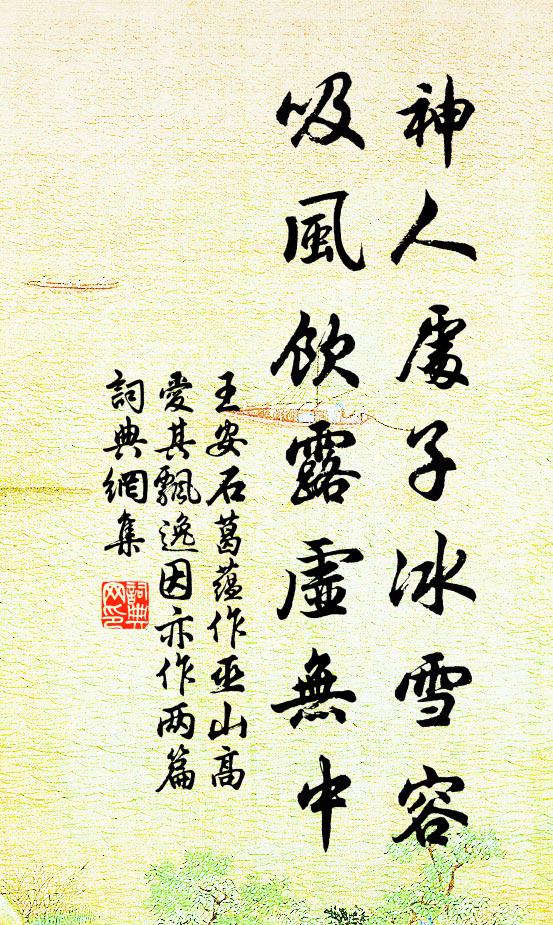 神人處子冰雪容
吸風飲露虛無中
王安石葛蘊作巫山高
愛其飄逸因亦作两篇
詞典網集
詞典
网印